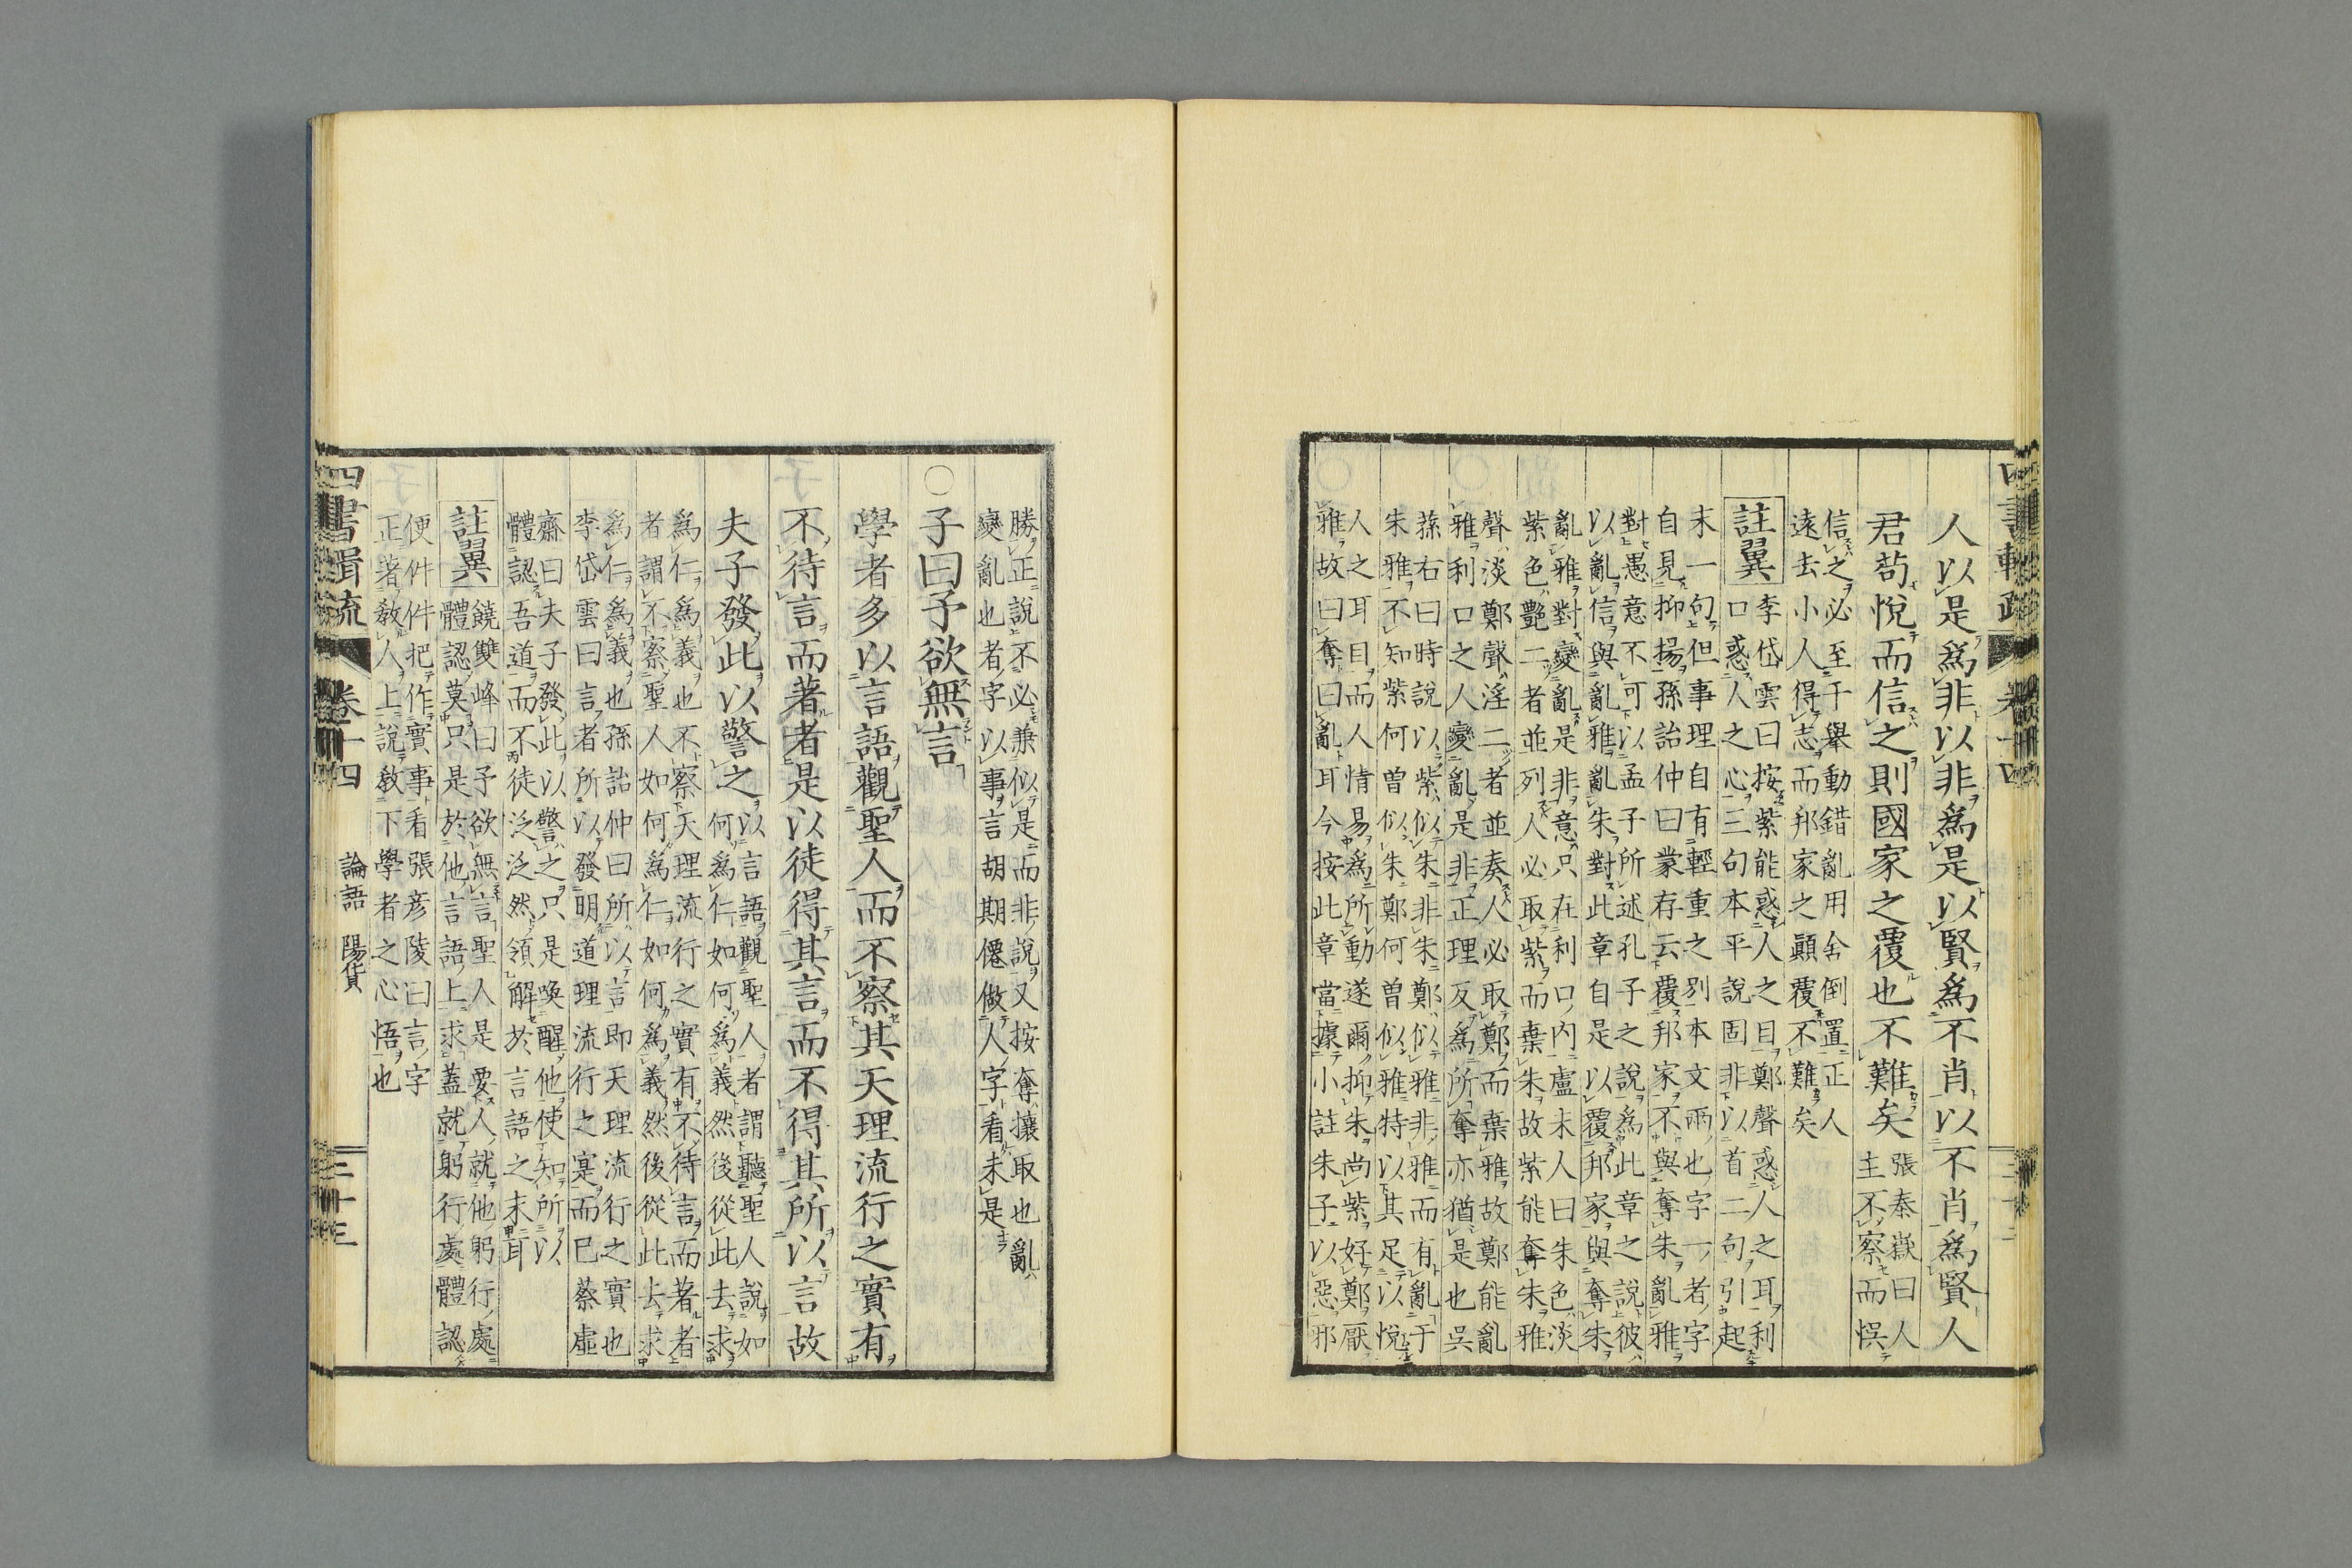 人以是爲非以非爲是以賢爲不肖以不肖爲賢人
君苟悅而信之則國家之覆也不難矣
張秦嶽曰人
主不察而悞
信之必至于舉動錯亂用舍倒置正人
遠去小人得志而邦家之顚覆不難矣
註翼
李岱雲曰按紫能惑人之目鄭聲惑人之耳利
口惑人之心三句本平說固非以首二句引起
末一句但事理自有輕重之別本文兩也字一者字
自見抑揚孫詒仲曰蒙存云覆邦家不與奪朱亂雅
對愚意不可以孟子所述孔子之說爲此章之說彼
以亂信與亂雅亂朱對此章自是以覆邦家與奪朱
亂雅對變亂是非意只在利口內盧未人曰朱色淡
紫色艷二者並列人必取紫而棄朱故紫能奪朱雅
聲淡鄭聲淫二者並奏人必取鄭而棄雅故鄭能亂
雅利口之人變亂是非正理反爲所奪亦猶是也吳
蓀右曰時說以紫似朱非朱鄭似雅非雅而有亂于
朱雅不知紫何曾似朱鄭何曾似雅特以其足以悅
人之耳目而人情易爲所動遂爾抑朱尚紫好鄭厭
雅故曰奪曰亂耳今按此章當據小註朱子以惡邪
勝正說不必兼似是而非說又按奪攘取也亂
變亂也者字以事言胡期僊做人字看未是
○子曰予欲無言
學者多以言語觀聖人而不察其天理流行之實有
不待言而著者是以徒得其言而不得其所以言故
夫子發此以警之
何以言語觀聖人者謂聽聖人說如
何爲仁如何爲義然後從此去求
爲仁爲義也不察天理流行之實有不待言而著者
者謂不察聖人如何爲仁如何爲義然後從此去求
爲仁爲義也孫詒仲曰所以言即天理流行之實也
李岱雲曰言者所以發明道理流行之寔而已蔡虛
齋曰夫子發此以警之只是喚醒他使知所以
體認吾道而不徒泛泛然領解於言語之末耳
註翼
饒雙峰曰予欲無言聖人是要人就他躬行處
體認莫只是於他言語上求蓋就躬行處體認
便件件把作實事看張彥陵曰言字
正著敎人上說敎下學者之心悟也
四書輯疏 卷十四 論語 陽貨 二十三